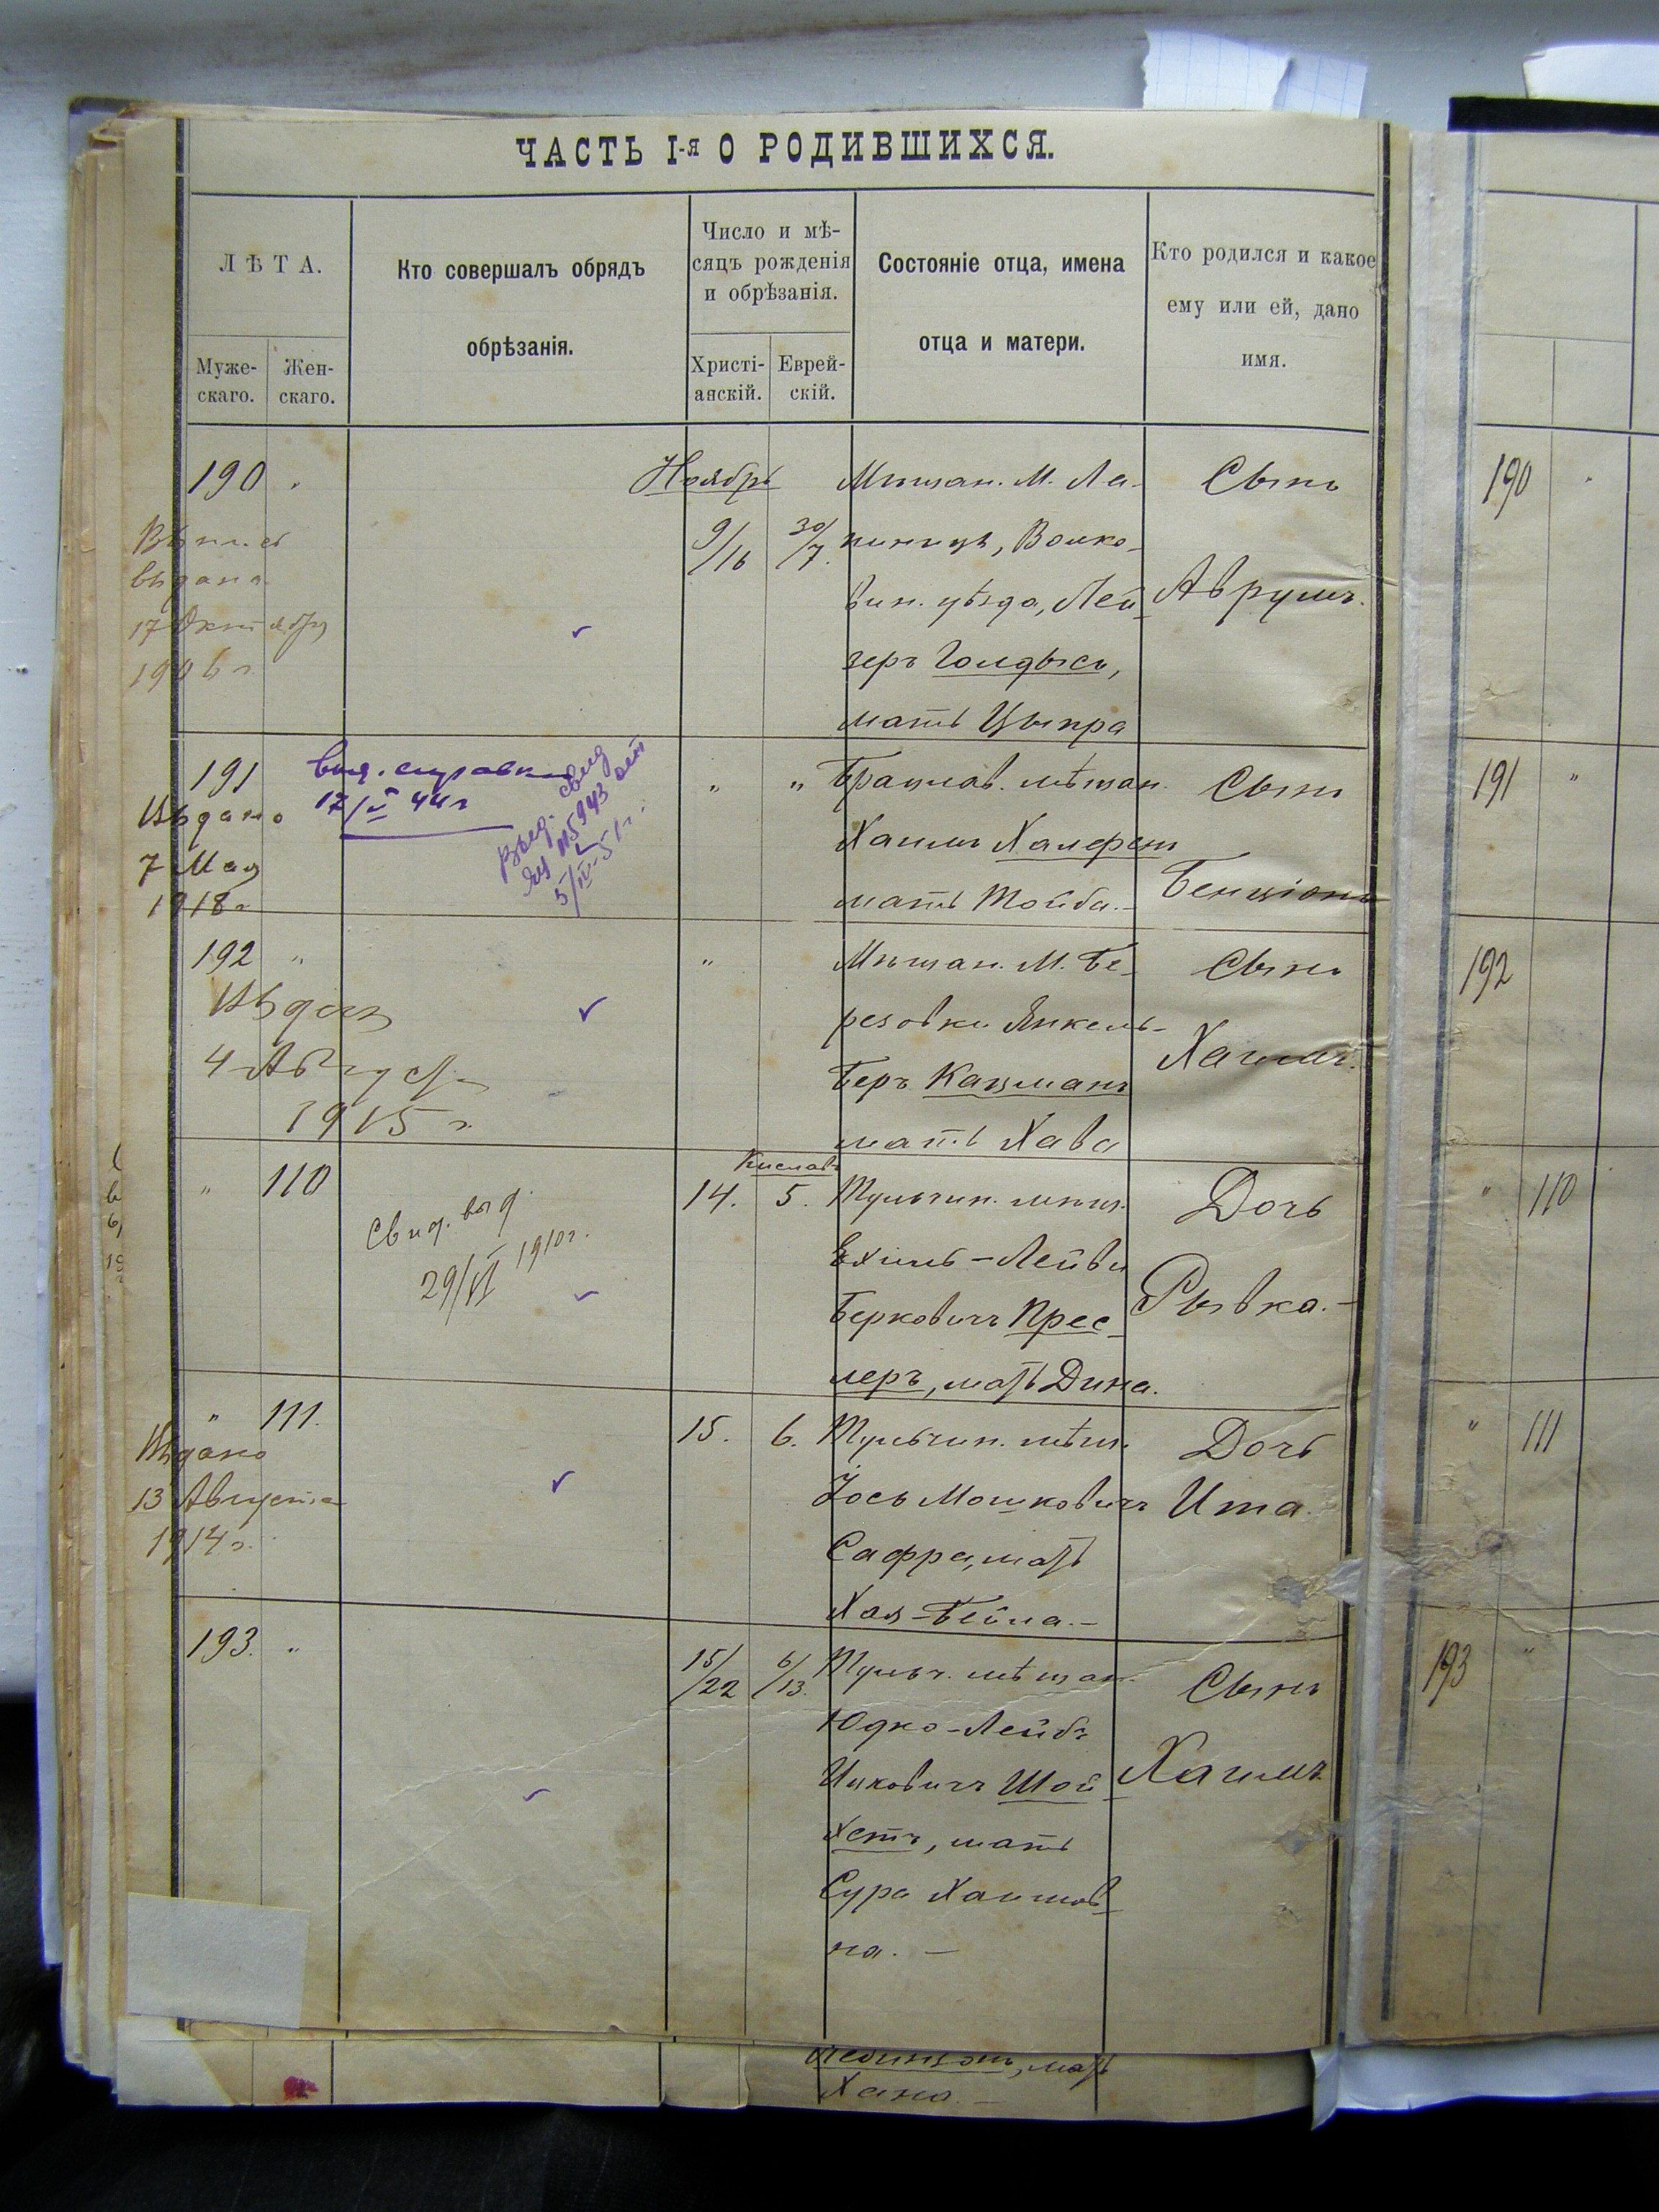 ЧАСТЬ I-я О РОДИВШИХСЯ.
ЛѢТА.
Муже-
скаго.
Жен-
скаго.
Кто совершалъ обрядъ
обрѣзанія.
Число и мѣ-
сяцъ рожденія
и обрѣзанія.
Христі-
анскій.
Еврей-
скій.
Состояніе отца, имена
отца и матери.
Кто родился и какое
ему или ей, дано
имя.
190 "
Ноябрь
9/16 30/7.
Мѣщан. М. Ла-
Лей-
зеръ Голдысъ,
мать Ципра
Сынъ
Аврумъ.
выдана
17 Октября
1906 г.
190 "
191
Выдано
7 Мая
1918 г
выд. справка
17/V 44 г
выд. свид
№ 5943
5/IV-51 г.
" "
Брацлав. мѣщан.
Хаимъ Халефенъ
мать Тойба.-
Сынъ
Бенціонъ
191 "
192 "
4 Августа
1915 г.
"
Мѣщан. М. Бе-
резовки Янкель-
Беръ Кацманъ
мать Хава
Сынъ
Хаимъ.
192
" 110
Свид. выд.
29/VI 1910 г.
Кислевъ
14. 5.
Тульчин. мѣщ.
Ехиль-Лейви
Берковичъ Прес-
леръ, мать Дина.
Дочь
Рывка.-
" 110
" 111.
Выдано
13 Августа
1914 г.
15. 6.
Тульчин. мѣщ.
Іось Мошковичъ
Сафра, мать
Хая-Бейла.-
Дочь
Ита.
" 111
193. "
15/22 6/13.
Тульч. мѣщан.
Юдко-Лейбъ
Ицковичъ Шой-
хетъ, мать
Сура Хаимов-
на.-
Сынъ
Хаимъ
193 "
мать
Хана.-